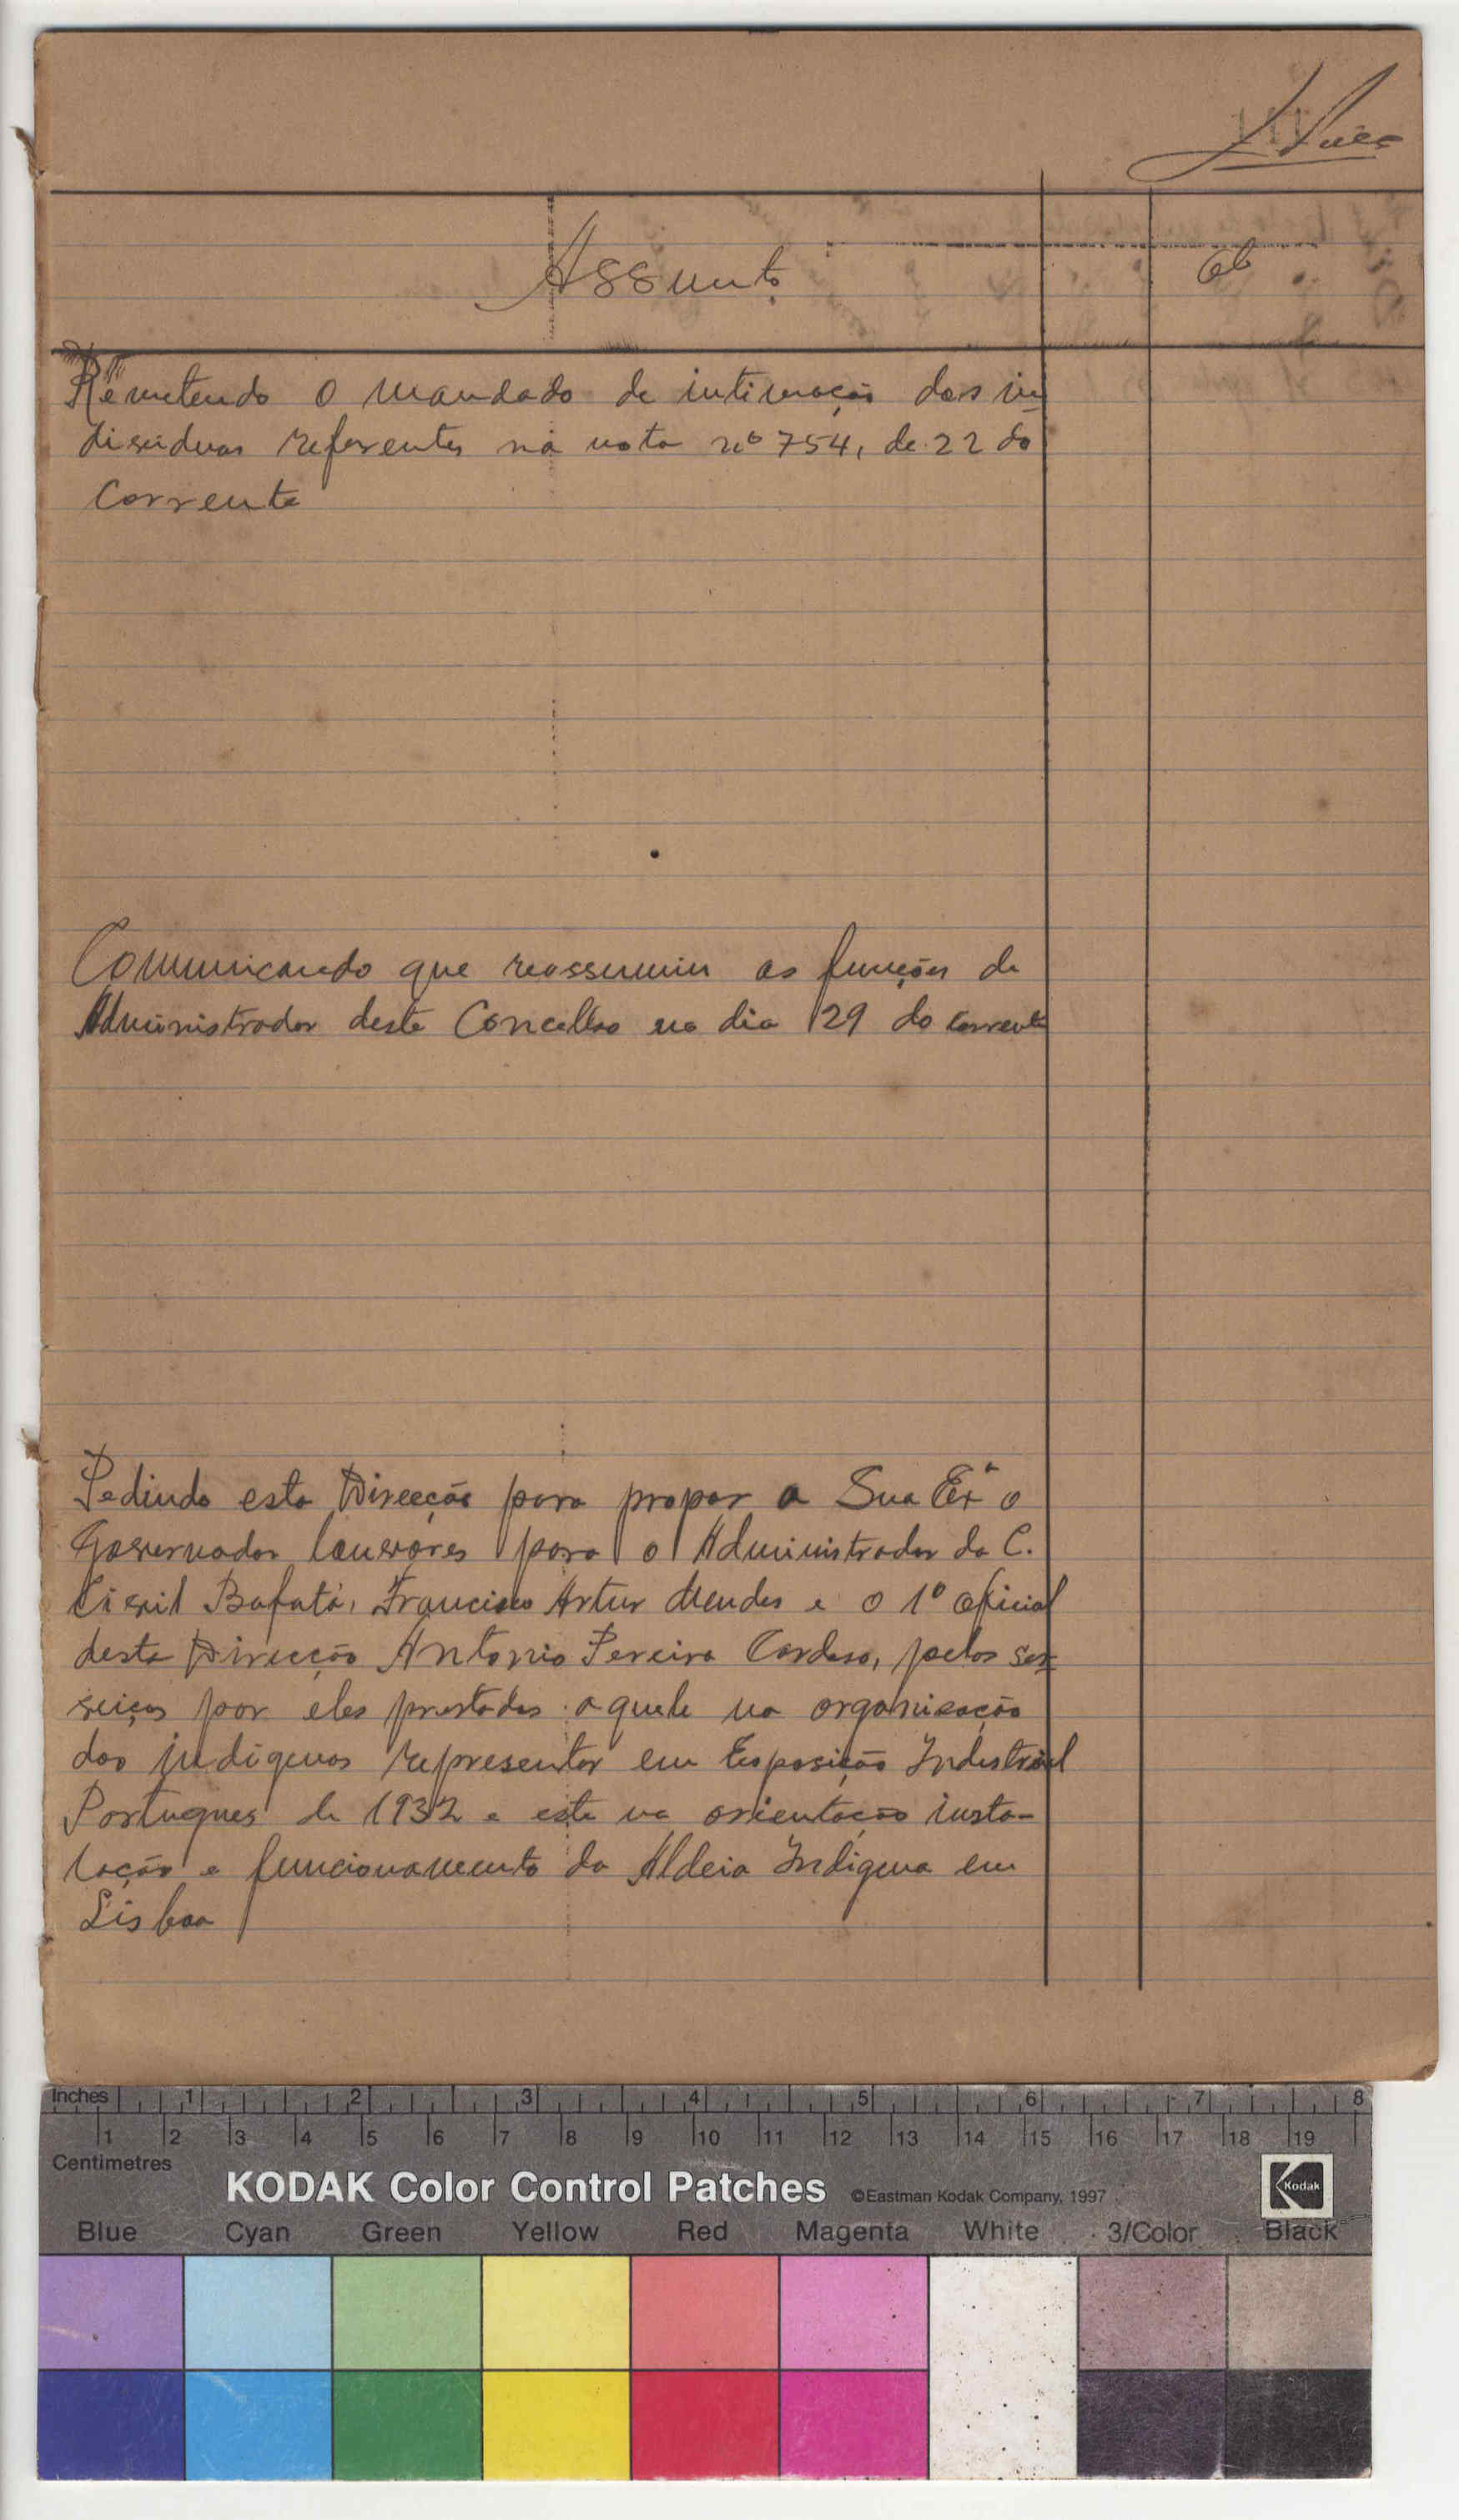 Assunto
Remetendo o mandado de intimação dos in-
dividuos referentes na nota nº 754, de 22 do
corrente
Communicando que reassumiu as funções de
Administrador deste Concelho no dia 29 do corrente
Pedindo esta Direcção para propor a Sua Exª o
Governador louvores para o Administrador da C.
Civil Bafatá, Francisco Artur Mendes e o 1º oficial
desta Direcção Antonio Pereira Cardoso, pelos ser-
viços por eles prestados aquele na organisação
dos indigenas representar em Exposição Industrial
Portugues de 1932 e este na orientação insta-
lação e funcionamento da Aldeia Indigena em
Lisboa
Inches 1 2 3 4 5 6 7 8
1 2 3 4 5 6 7 8 9 10 11 12 13 14 15 16 17 18 19
Centimetres
KODAK Color Control Patches ©Eastman Kodak Company, 1997 Kodak
Blue Cyan Green Yellow Red Magenta White 3/Color Black